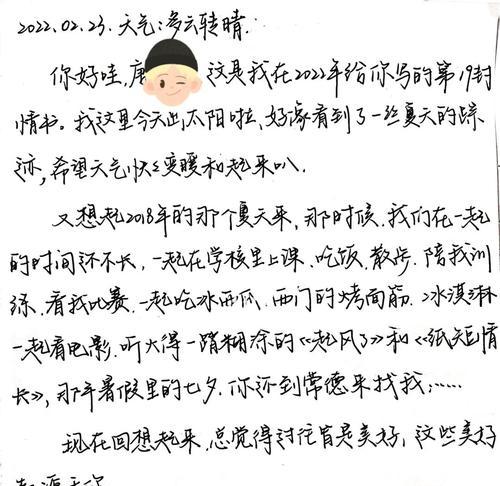 2022.02.23.天气:多云转晴.
你好哇,唐 这是我在2022年给你写的第19封
情书。我这里今天出太阳啦,好像看到了一丝夏天的踪
迹,希望天气快快变暖和起来叭.
又想起2018年的那个夏天来,那时候,我们在一起
的时间还不长,一起在学校里上课、吃饭、散步、陪我训
练、看我比赛、一起吃冰西瓜、西门的烤面筋、冰淇淋
一起看电影、听火得一蹋糊涂的《起风了》和《纸短情
长》,那年暑假里的七夕,你还到常德来找我;……
现在回想起来,总觉得过往皆是美好,这些美好